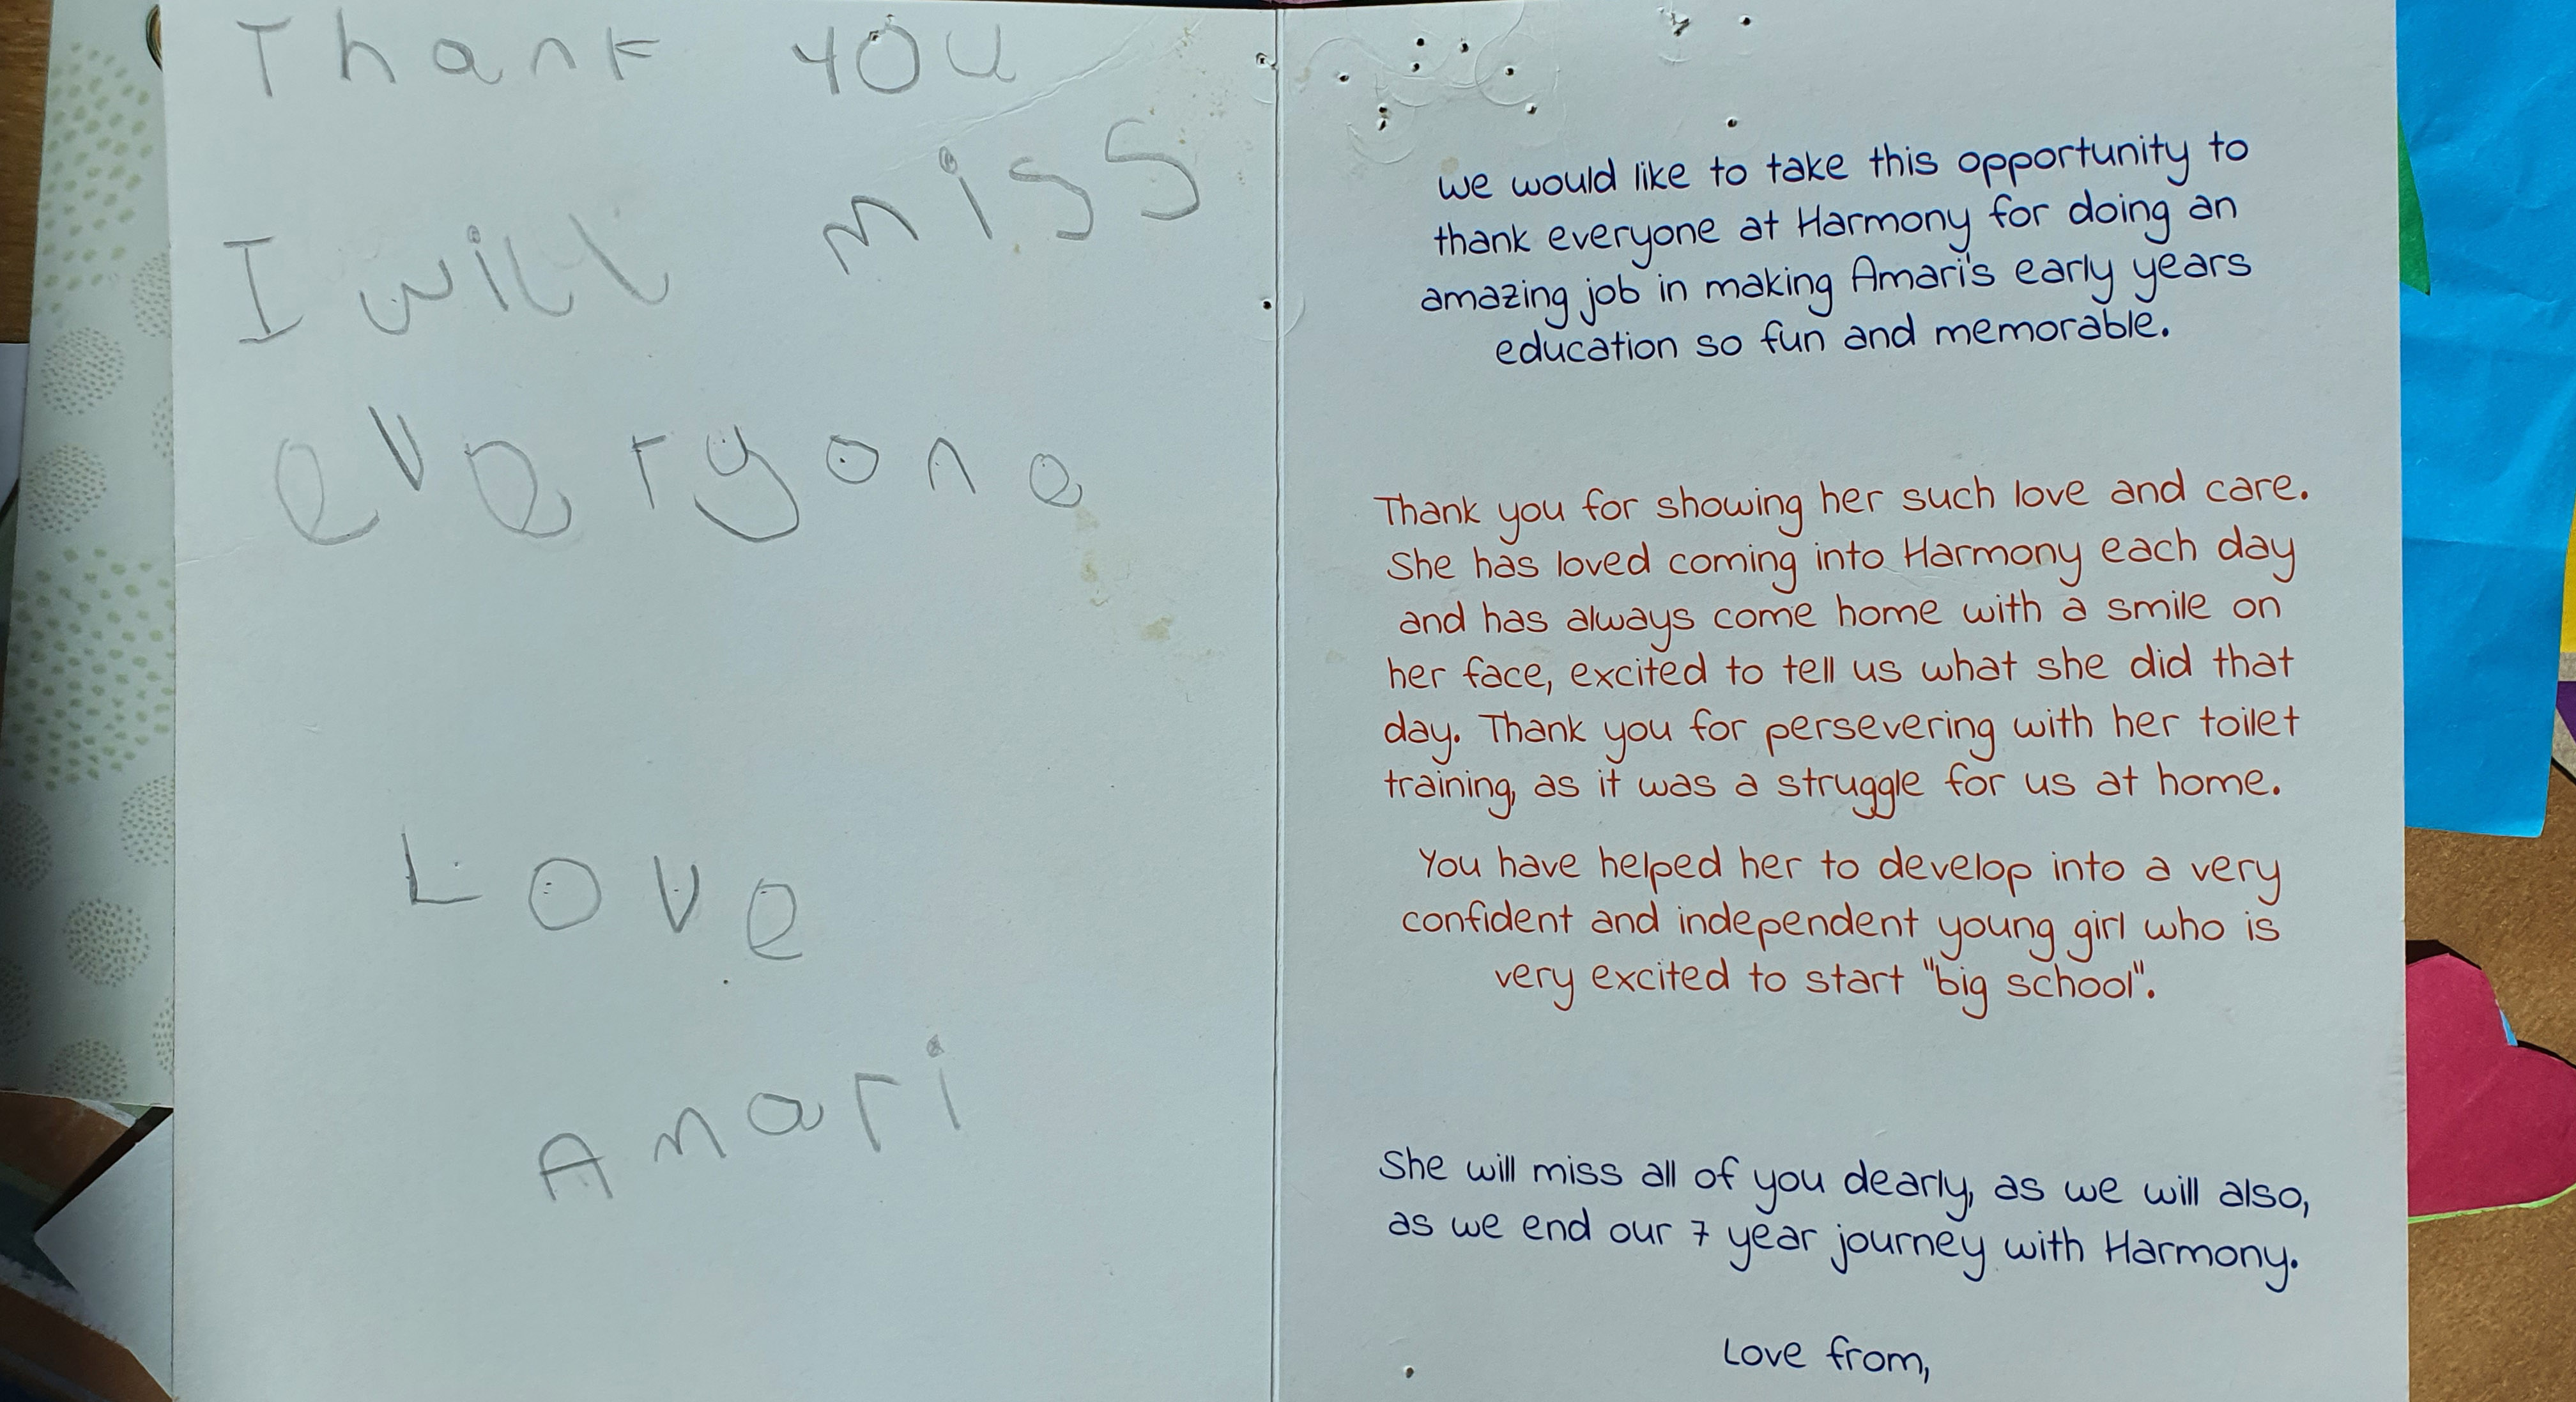 Thank you
I will miss
everyone
Love
Amari
we would like to take this opportunity to
thank everyone at Harmony for doing an
amazing job in making Amari's early years
education so fun and memorable.
Thank you for showing her such love and care.
She has loved coming into Harmony each day
and has always come home with a smile on
her face, excited to tell us what she did that
day. Thank you for persevering with her toilet
training, as it was a struggle for us at home.
You have helped her to develop into a very
confident and independent young girl who is
very excited to start "big school".
She will miss all of you dearly, as we will also,
as we end our 7 year journey with Harmony.
Love from,